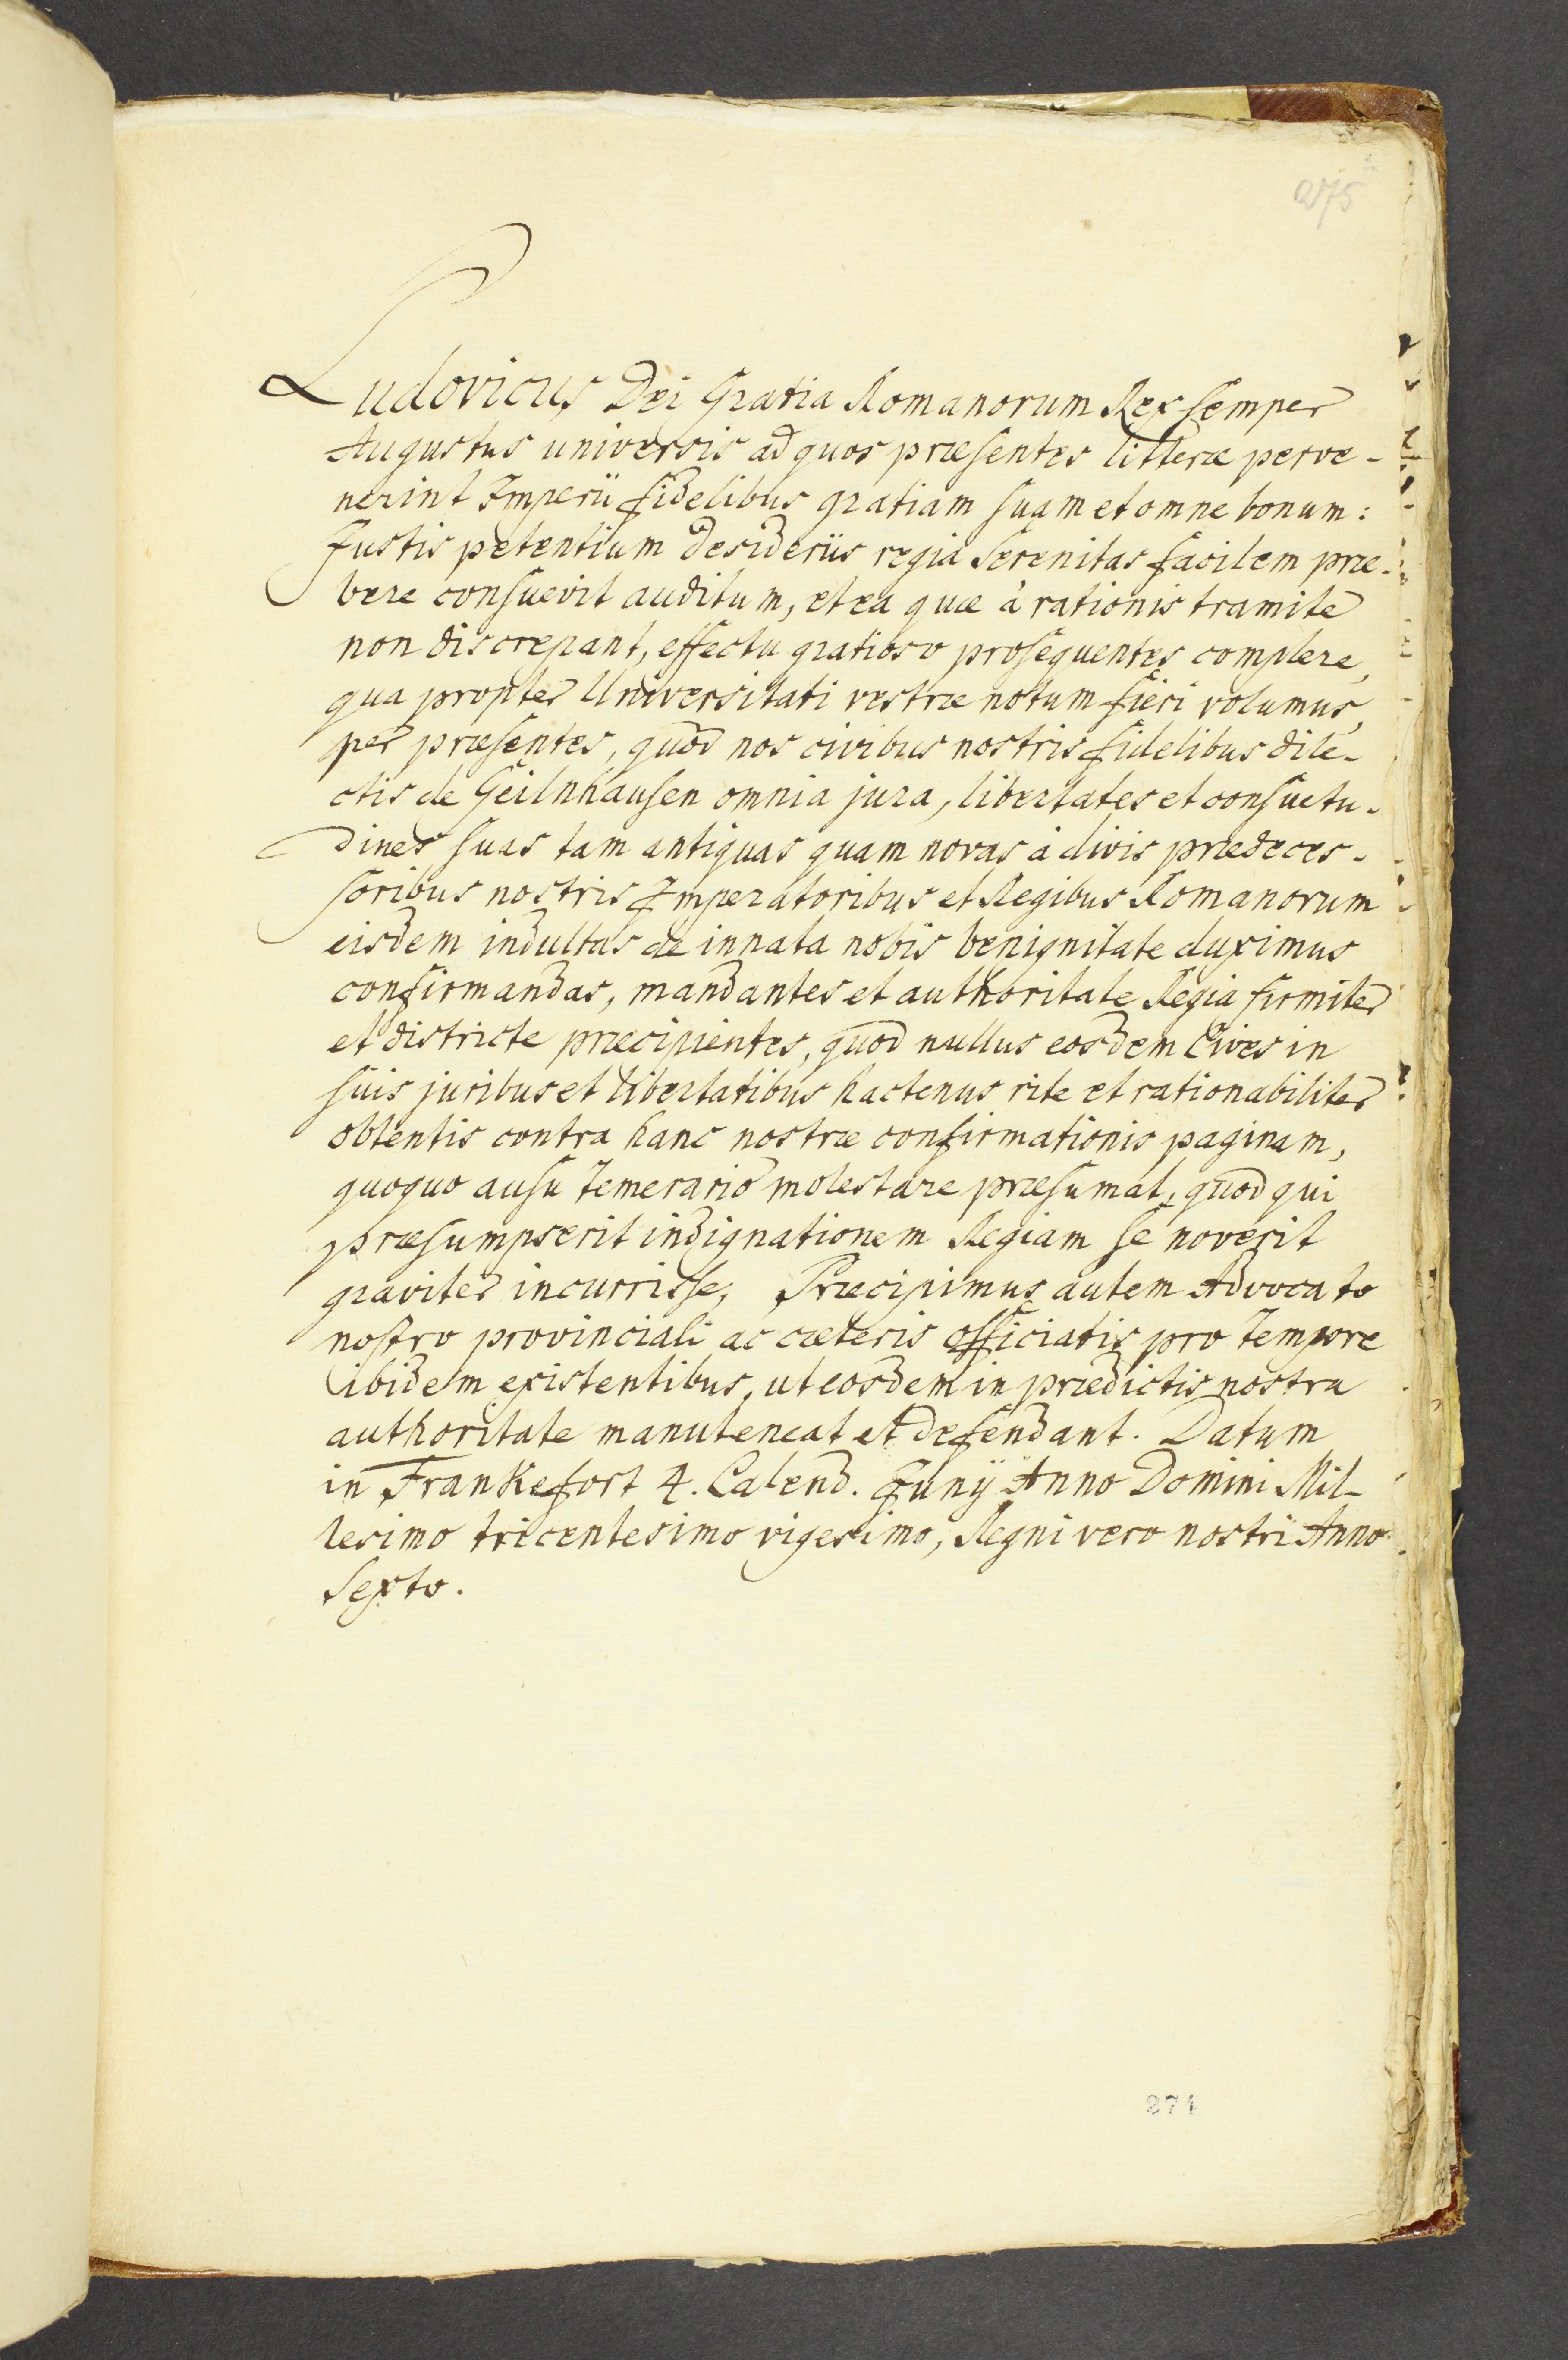 275
Ludovicus Dei Gratia Romanorum Rex semper
Augustus universis ad quos præsentes litteræ perve-
nerint Imperii fidelibus gratiam suam et omne bonum:
Justis petentium desideriis regia Serenitas facilem præ-
bere consuevit auditum, et ea quæ à rationis tramite
non discrepant, effectu gratioso prosequentes complere,
qua propter Universitati vestræ notum fieri volumus,
per præsentes, quod nos civibus nostris fidelibus dile-
ctis de Geilnhausen omnia jura, libertates et consuetu-
dines suas tam antiquas quam novas à divis prædeces-
soribus nostris Imperatoribus et Regibus Romanorum
eisdem indultas de innata nobis benignitate duximus
confirmandas, mandantes et authoritate Regia firmiter
et districte præcipientes, quod nullus eosdem Cives in
suis juribus et libertatibus hactenus rite et rationabiliter
obtentis contra hanc nostræ confirmationis paginam,
quoquo ausu temerario molestare præsumat, quod qui
præsumpserit indignationem Regiam se noverit
graviter incurrisse, Præcipimus autem Advocato
nostro provinciali ac cæteris officiatis pro tempore
ibidem existentibus, ut eosdem in prædictis nostra
authoritate manuteneat et defendant. Datum
in Frankefort 4. Calend. Junÿ Anno Domini Mil-
lesimo tricentesimo vigesimo, Regni vero nostri Anno
Sexto.
274